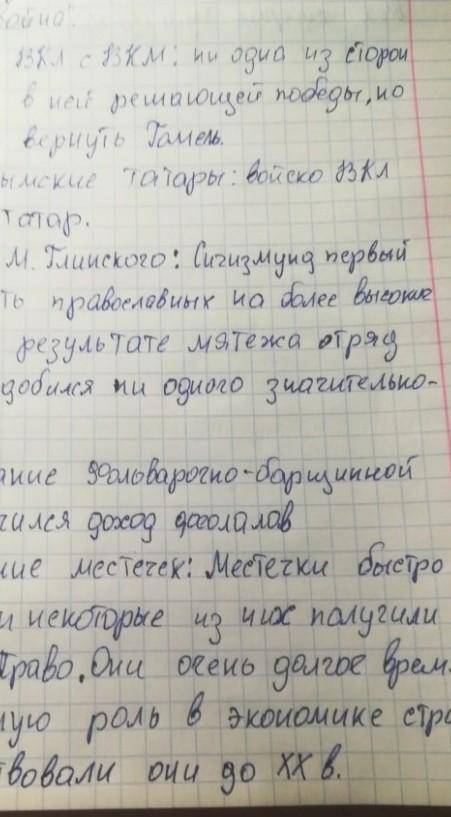 война:
ВКЛ с ВКМ: ни одна из сторон
в ней решающей победы, но
вернуть Гомель.
ымские татары: войско ВКЛ
татар.
М. Глинского: Сигизмунд первый
ть православных на более высокие
результате мятежа отряд
добился ни одного значительно-
ание фольварочно-барщинной
чился доход
ние местечек: Местечки быстро
и некоторые из них получили
право. Они очень долгое врем
ную роль в экономике стра
твовали они до XX в.